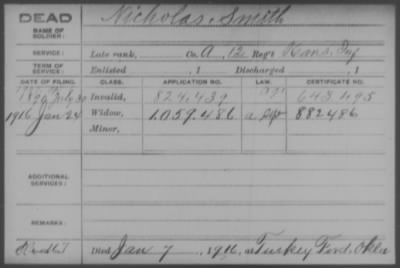 DEAD Nicholas Smith
NAME OF SOLDIER:
SERVICE: Late rank, Co. A, 12 Reg't Kans. Inf
TERM OF SERVICE: Enlisted , 1 Discharged , 1
DATE OF FILING. CLASS. APPLICATION NO. LAW. CERTIFICATE NO.
1890 July 30 Invalid, 824,439 643495
1916 Jan 24 Widow, 1.059.486 882486
Minor,
ADDITIONAL SERVICES:
REMARKS:
Died Jan 7, 1916, at Turkey Ford, Okla